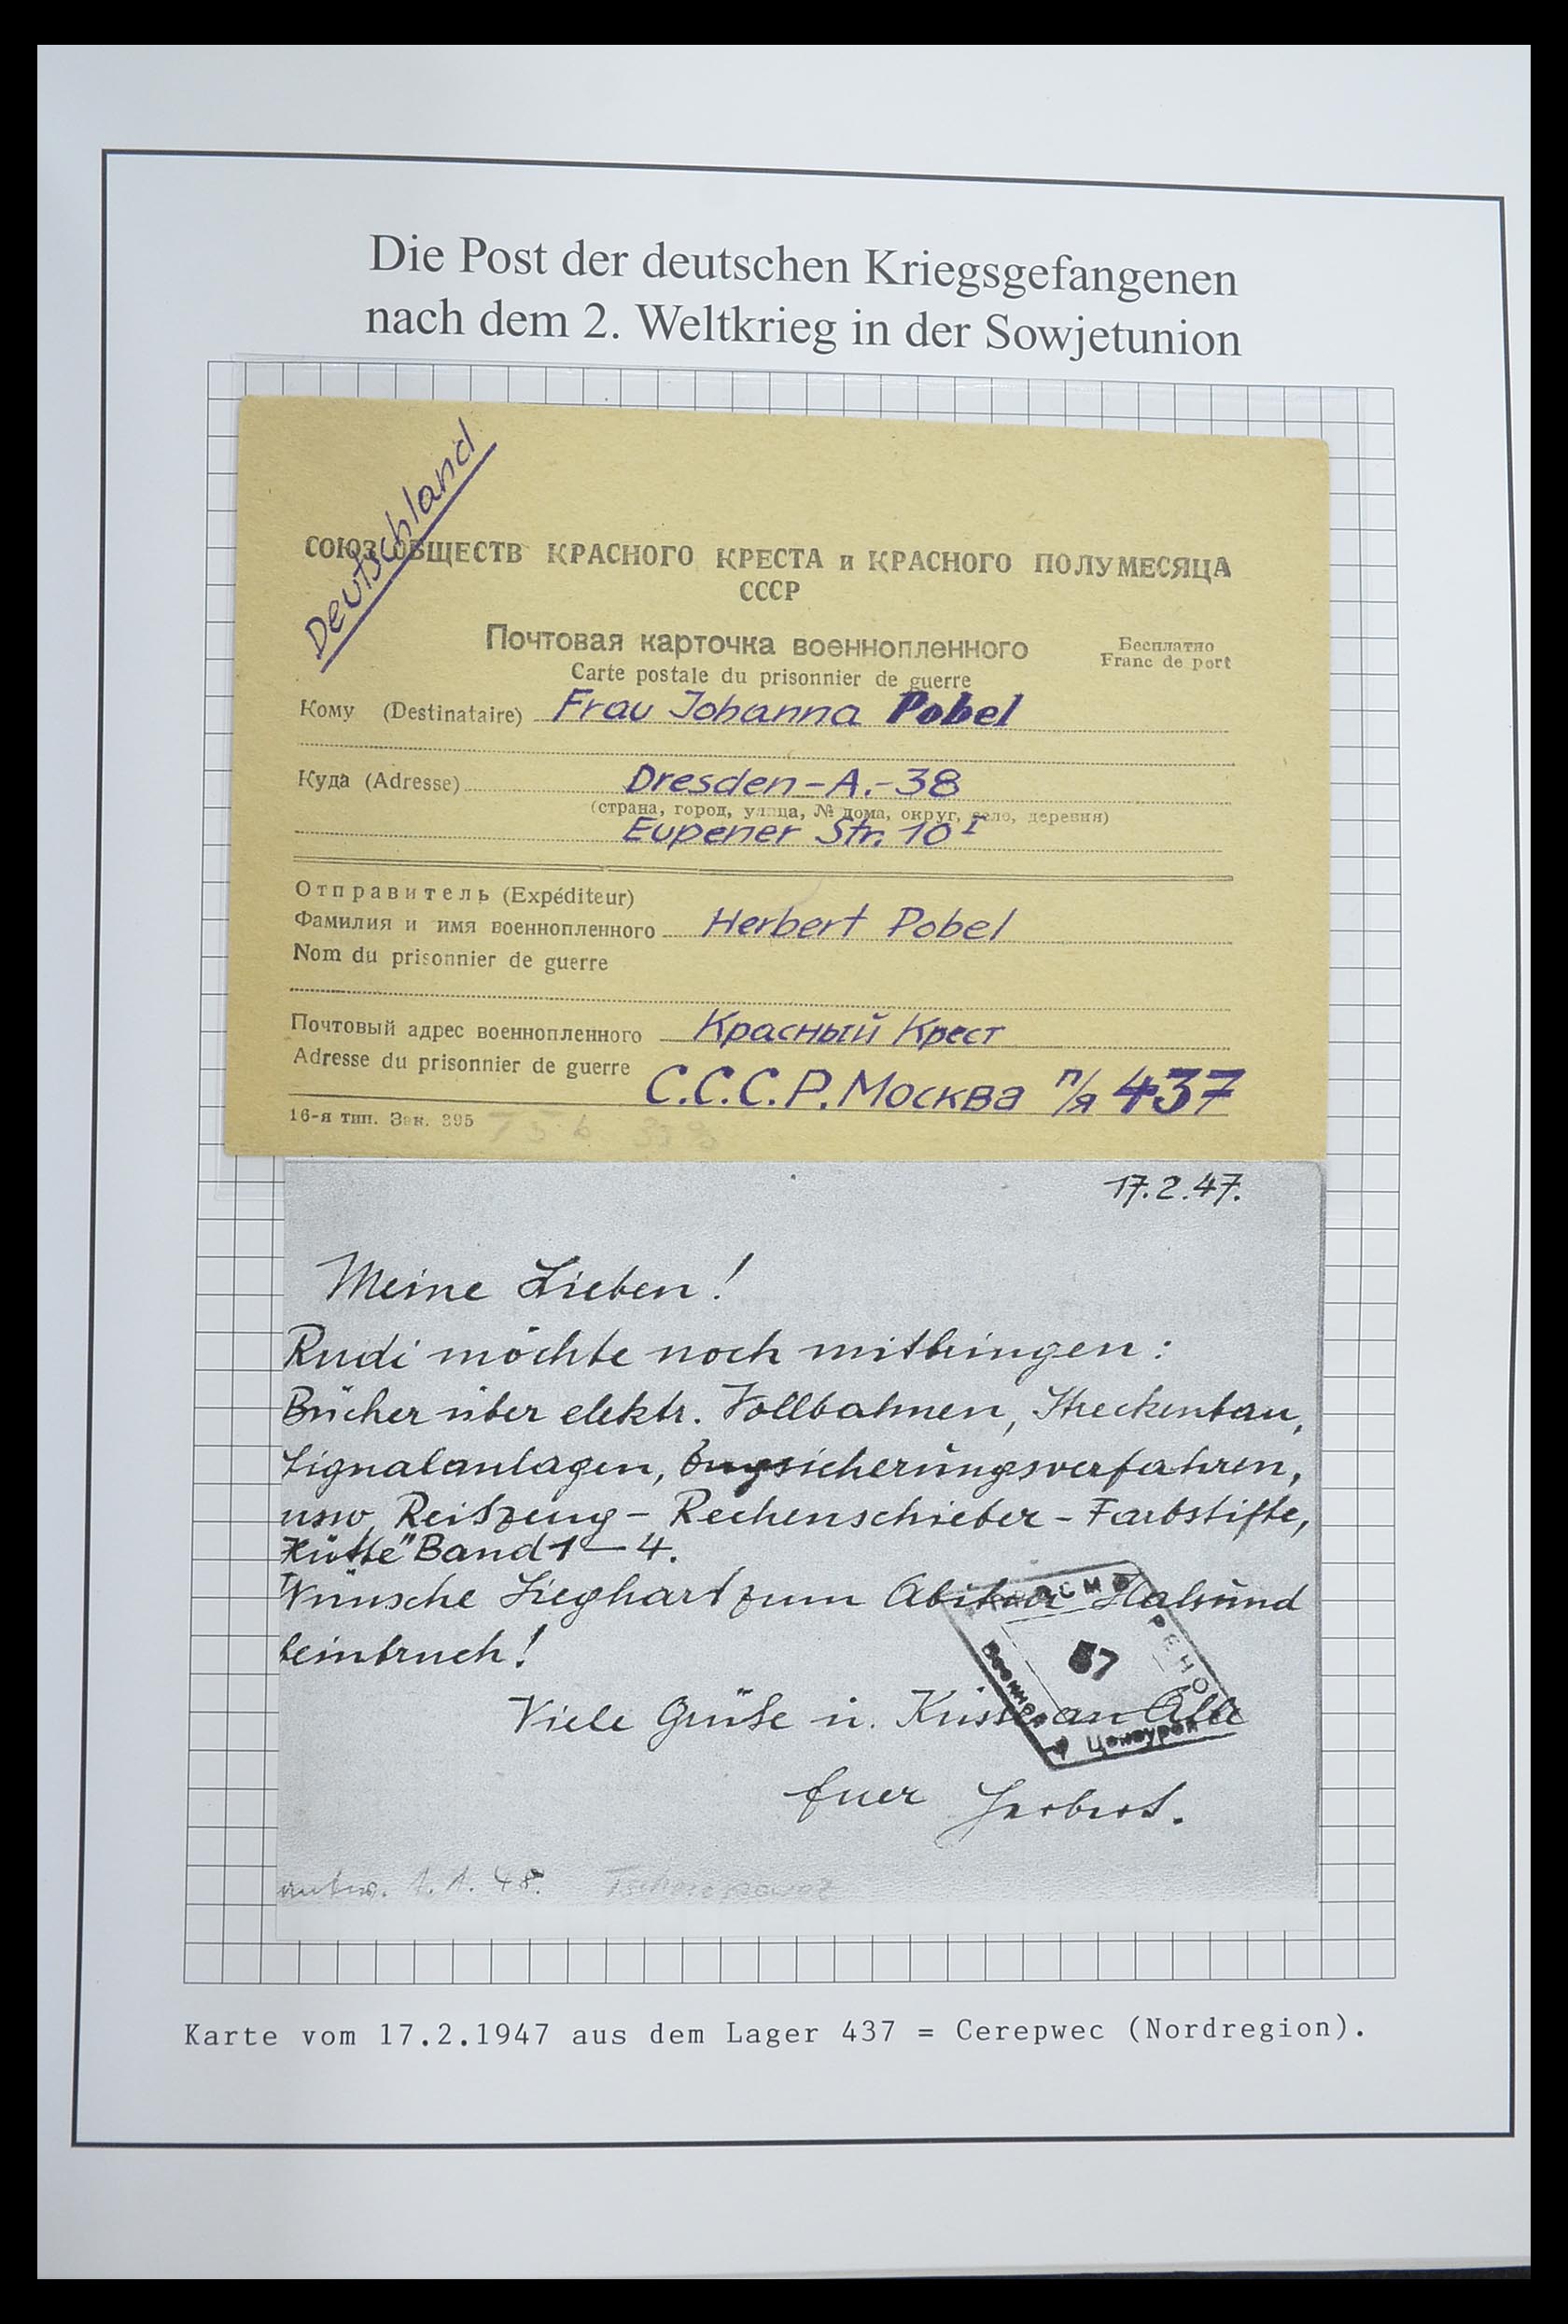 Die Post der deutschen Kriegsgefangenen
nach dem 2. Weltkrieg in der Sowjetunion
Deutschland
СОЮЗ ОБЩЕСТВ КРАСНОГО КРЕСТА и КРАСНОГО ПОЛУМЕСЯЦА
СССР
Почтовая карточка военнопленного
Бесплатно
Carte postale du prisonnier de guerre
Franc de port
Кому (Destinataire) Frau Johanna Pobel
Куда (Adresse) Dresden-A.-38
(страна, город, улица, № дома, округ, село, деревня)
Eupener Str. 10 I
Отправитель (Expéditeur)
Фамилия и имя военнопленного Herbert Pobel
Nom du prisonnier de guerre
Почтовый адрес военнопленного Красный Крест
Adresse du prisonnier de guerre С.С.С.Р. Москва п/я 437
16-я тип. Зак. 395
17.2.47.
Meine Lieben!
Rudi möchte noch mitbringen:
Bücher über elektr. Vollbahnen, Streckenbau,
Signalanlagen, Zugsicherungsverfahren,
usw. Reißzeug - Rechenschieber - Farbstifte,
"Hütte" Band 1 - 4.
Wünsche Sieghart zum Abitur Halsund
beinbruch!
57
Военной
Цензурой
Viele Grüße u. Küsse an Alle
Euer Herbert.
antw. 1.1.48.
Karte vom 17.2.1947 aus dem Lager 437 = Cerepwec (Nordregion).